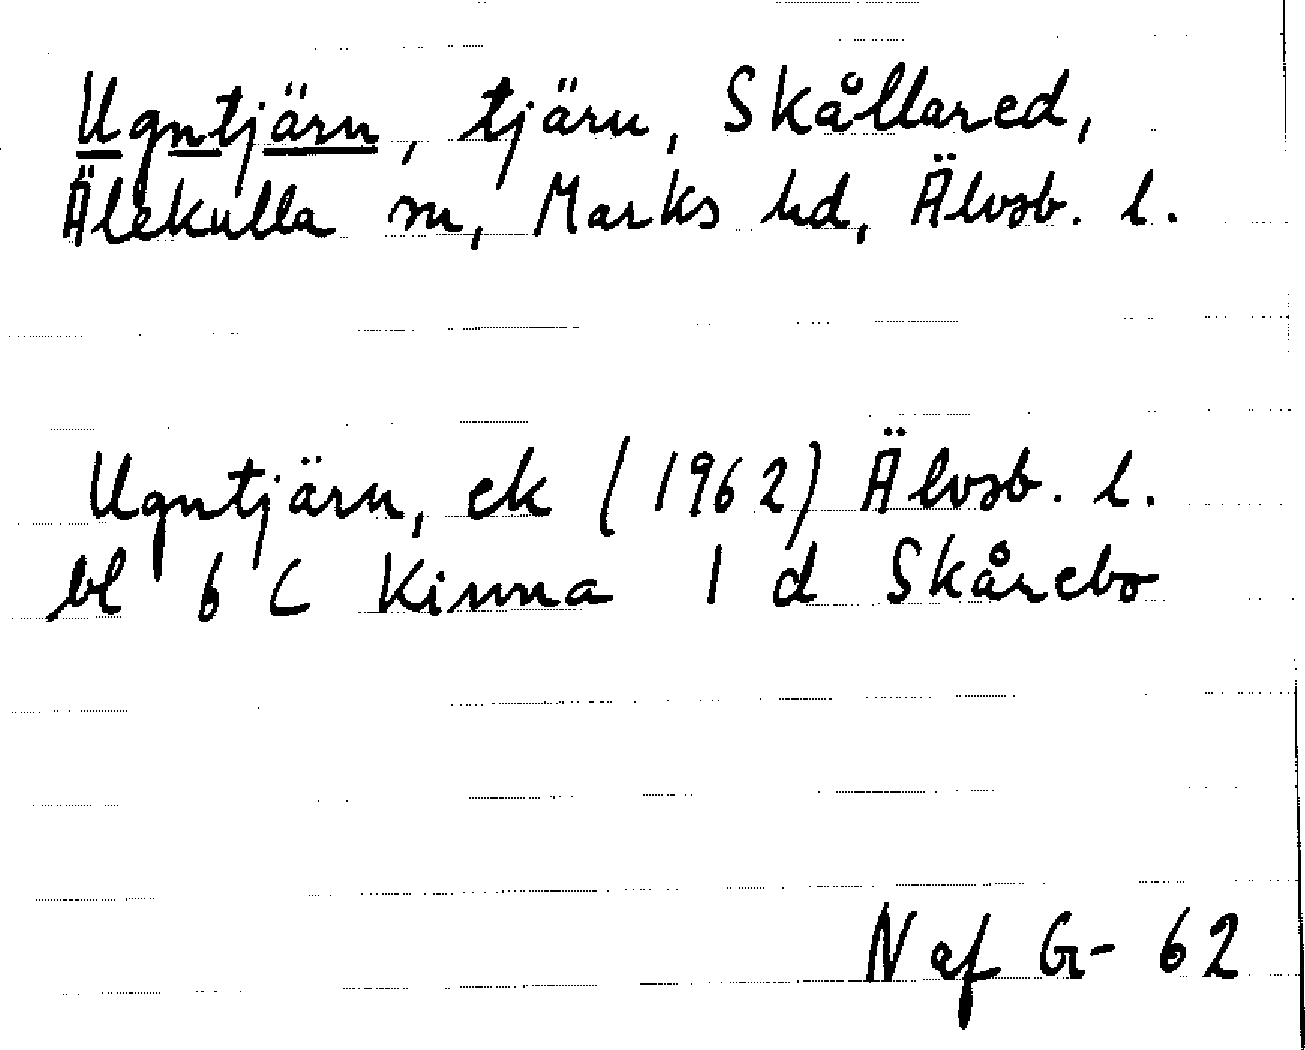 Ugntjärn, tjärn, Skållared,
Älekulla sn, Marks hd, Älvsb. l.
Ugntjärn, ek (1962) Älvsb. l.
bl 6 C Kinna 1 d Skårebo
N af G- 62